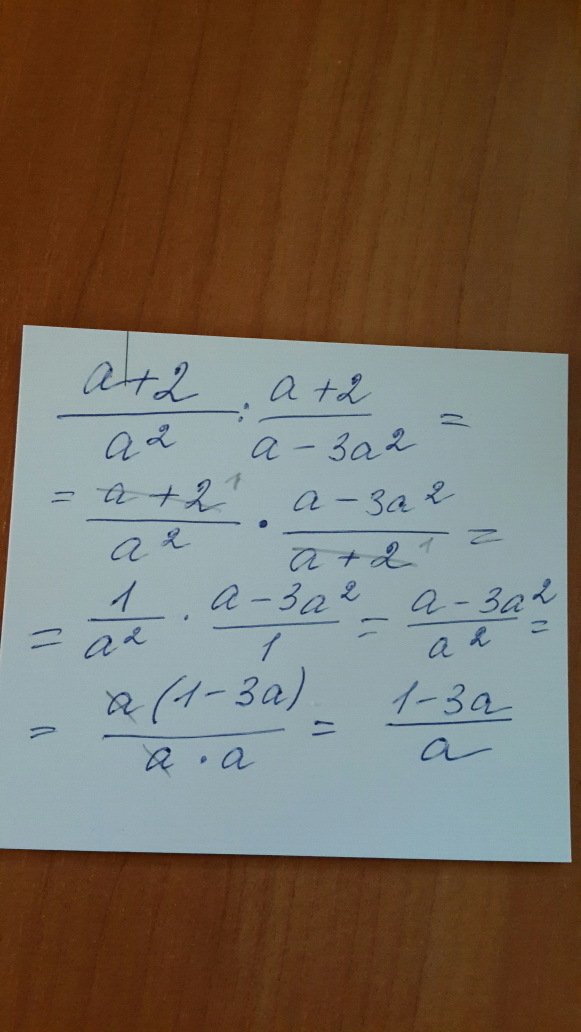 (a+2)/a² : (a+2)/(a-3a²) =
= (a+2)¹/a² · (a-3a²)/(a+2)¹ =
= 1/a² · (a-3a²)/1 = (a-3a²)/a² =
= a(1-3a)/(a·a) = (1-3a)/a